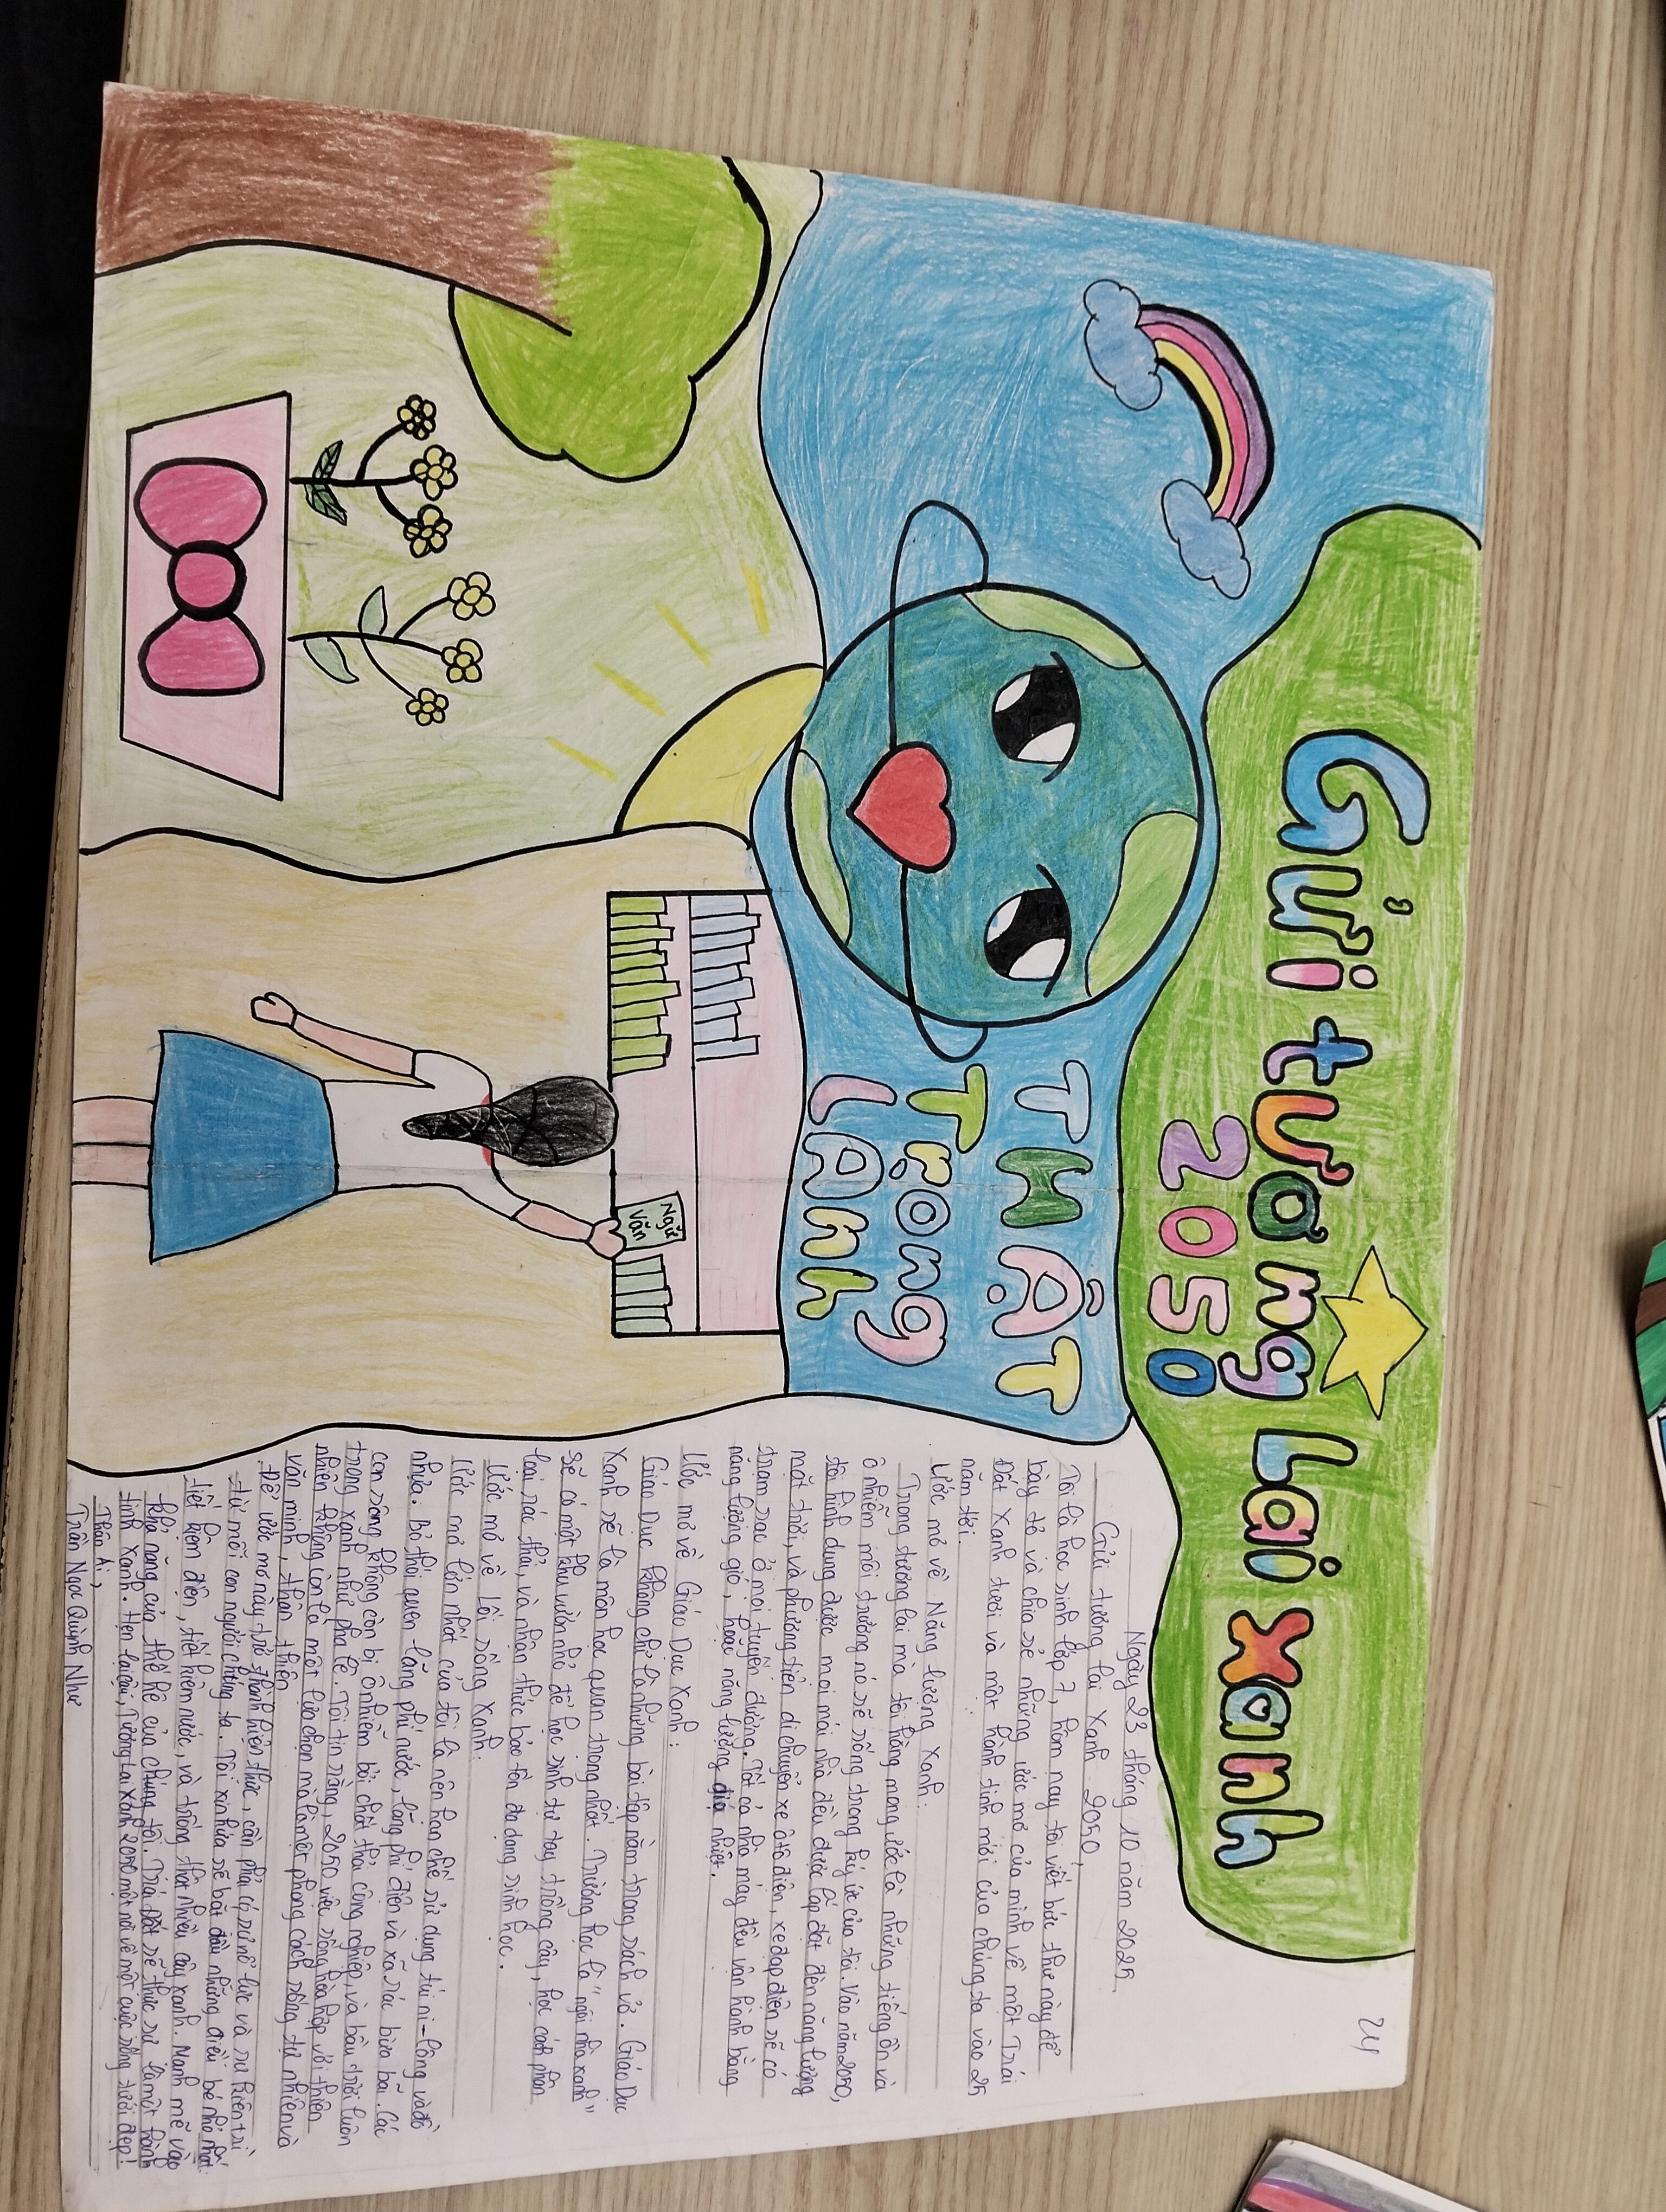 Gửi tương lai xanh
2050
THẬT
Trọng
LÀNH
Ngữ
Văn
24
Ngày 23 tháng 10 năm 2025
Gửi tương lai Xanh 2050,
Tôi là học sinh lớp 7, hôm nay tôi viết bức thư này để
bày tỏ và chia sẻ những ước mơ của mình về một Trái
Đất Xanh tươi và một hành tinh mới của chúng ta vào 25
năm tới.
Ước mơ về Năng lượng Xanh:
Trong tương lai mà tôi hằng mong ước là những tiếng ồn và
ô nhiễm môi trường nó sẽ sống trong ký ức của tôi. Vào năm 2050,
tôi hình dung được mọi mái nhà đều được lắp đặt đèn năng lượng
mặt trời, và phương tiện di chuyển xe ô tô điện, xe đạp điện sẽ có
trạm sạc ở mọi tuyến đường. Tất cả nhà máy đều vận hành bằng
năng lượng gió, hoặc năng lượng địa nhiệt.
Ước mơ về Giáo Dục Xanh:
Giáo Dục không chỉ là những bài tập nằm trong sách vở. Giáo Dục
Xanh sẽ là môn học quan trọng nhất. Trường học là "ngôi nhà xanh"
sẽ có một khu vườn nhỏ để học sinh tự tay trồng cây, học cách phân
loại rác thải, và nhận thức bảo tồn đa dạng sinh học.
Ước mơ về Lối sống Xanh:
Ước mơ lớn nhất của tôi là nên hạn chế sử dụng túi ni-lông và đồ
nhựa. Bỏ thói quen lãng phí nước, lãng phí điện và xả rác bừa bãi. Các
con sông không còn bị ô nhiễm bởi chất thải công nghiệp, và bầu trời luôn
trong xanh như pha lê. Tôi tin rằng, 2050 việc sống hòa hợp với thiên
nhiên không còn là một lựa chọn mà là một phong cách sống tự nhiên và
văn minh, thân thiện.
Để ước mơ này trở thành hiện thực, cần phải có sự nỗ lực và sự kiên trì
từ mỗi con người chúng ta. Tôi xin hứa sẽ bắt đầu những điều bé nhỏ nhất:
tiết kiệm điện, tiết kiệm nước, và trồng thật nhiều cây xanh. Mạnh mẽ vào
khả năng của thế hệ của chúng tôi. Trái Đất sẽ thực sự là một hành
tinh Xanh. Hẹn lại, Tương Lai Xanh 2050 một nơi về một cuộc sống tươi đẹp!
Thân Ái,
Trần Ngọc Quỳnh Như